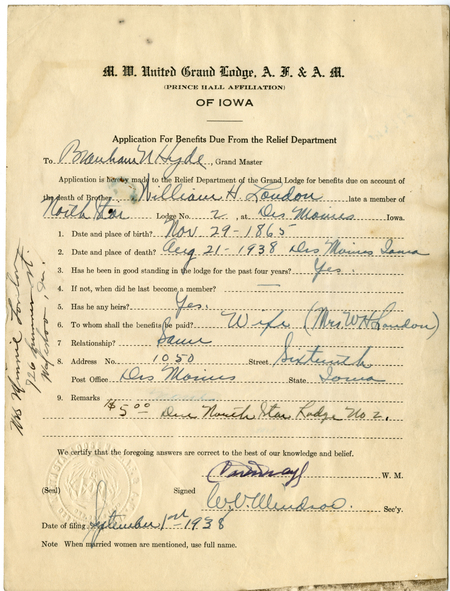 M. W. United Grand Lodge, A. F. & A. M.
(PRINCE HALL AFFILIATION)
OF IOWA
Application For Benefits Due From the Relief Department
To Hyde, Grand Master
Application is hereby made to the Relief Department of the Grand Lodge for benefits due on account of
the death of Brother William H. London late a member of
North Star Lodge No. 2, at Des Moines Iowa.
1. Date and place of birth? Nov 29-1865
2. Date and place of death? Aug 21-1938 Des Moines Iowa
3. Has he been in good standing in the lodge for the past four years? Yes.
4. If not, when did he last become a member? —
5. Has he any heirs? Yes.
6. To whom shall the benefits be paid? Wife (Mrs W H London)
7. Relationship? Same
8 Address No. 1050 Street Sixteenth
Post Office Des Moines State Iowa
9. Remarks
$5.00 Due North Star Lodge No 2.
We certify that the foregoing answers are correct to the best of our knowledge and belief.
W. M.
(Seal) Signed Sec'y.
Date of filing September 1st-1938
Note When married women are mentioned, use full name.
Mrs Minnie London
926
Waterloo, Ia.